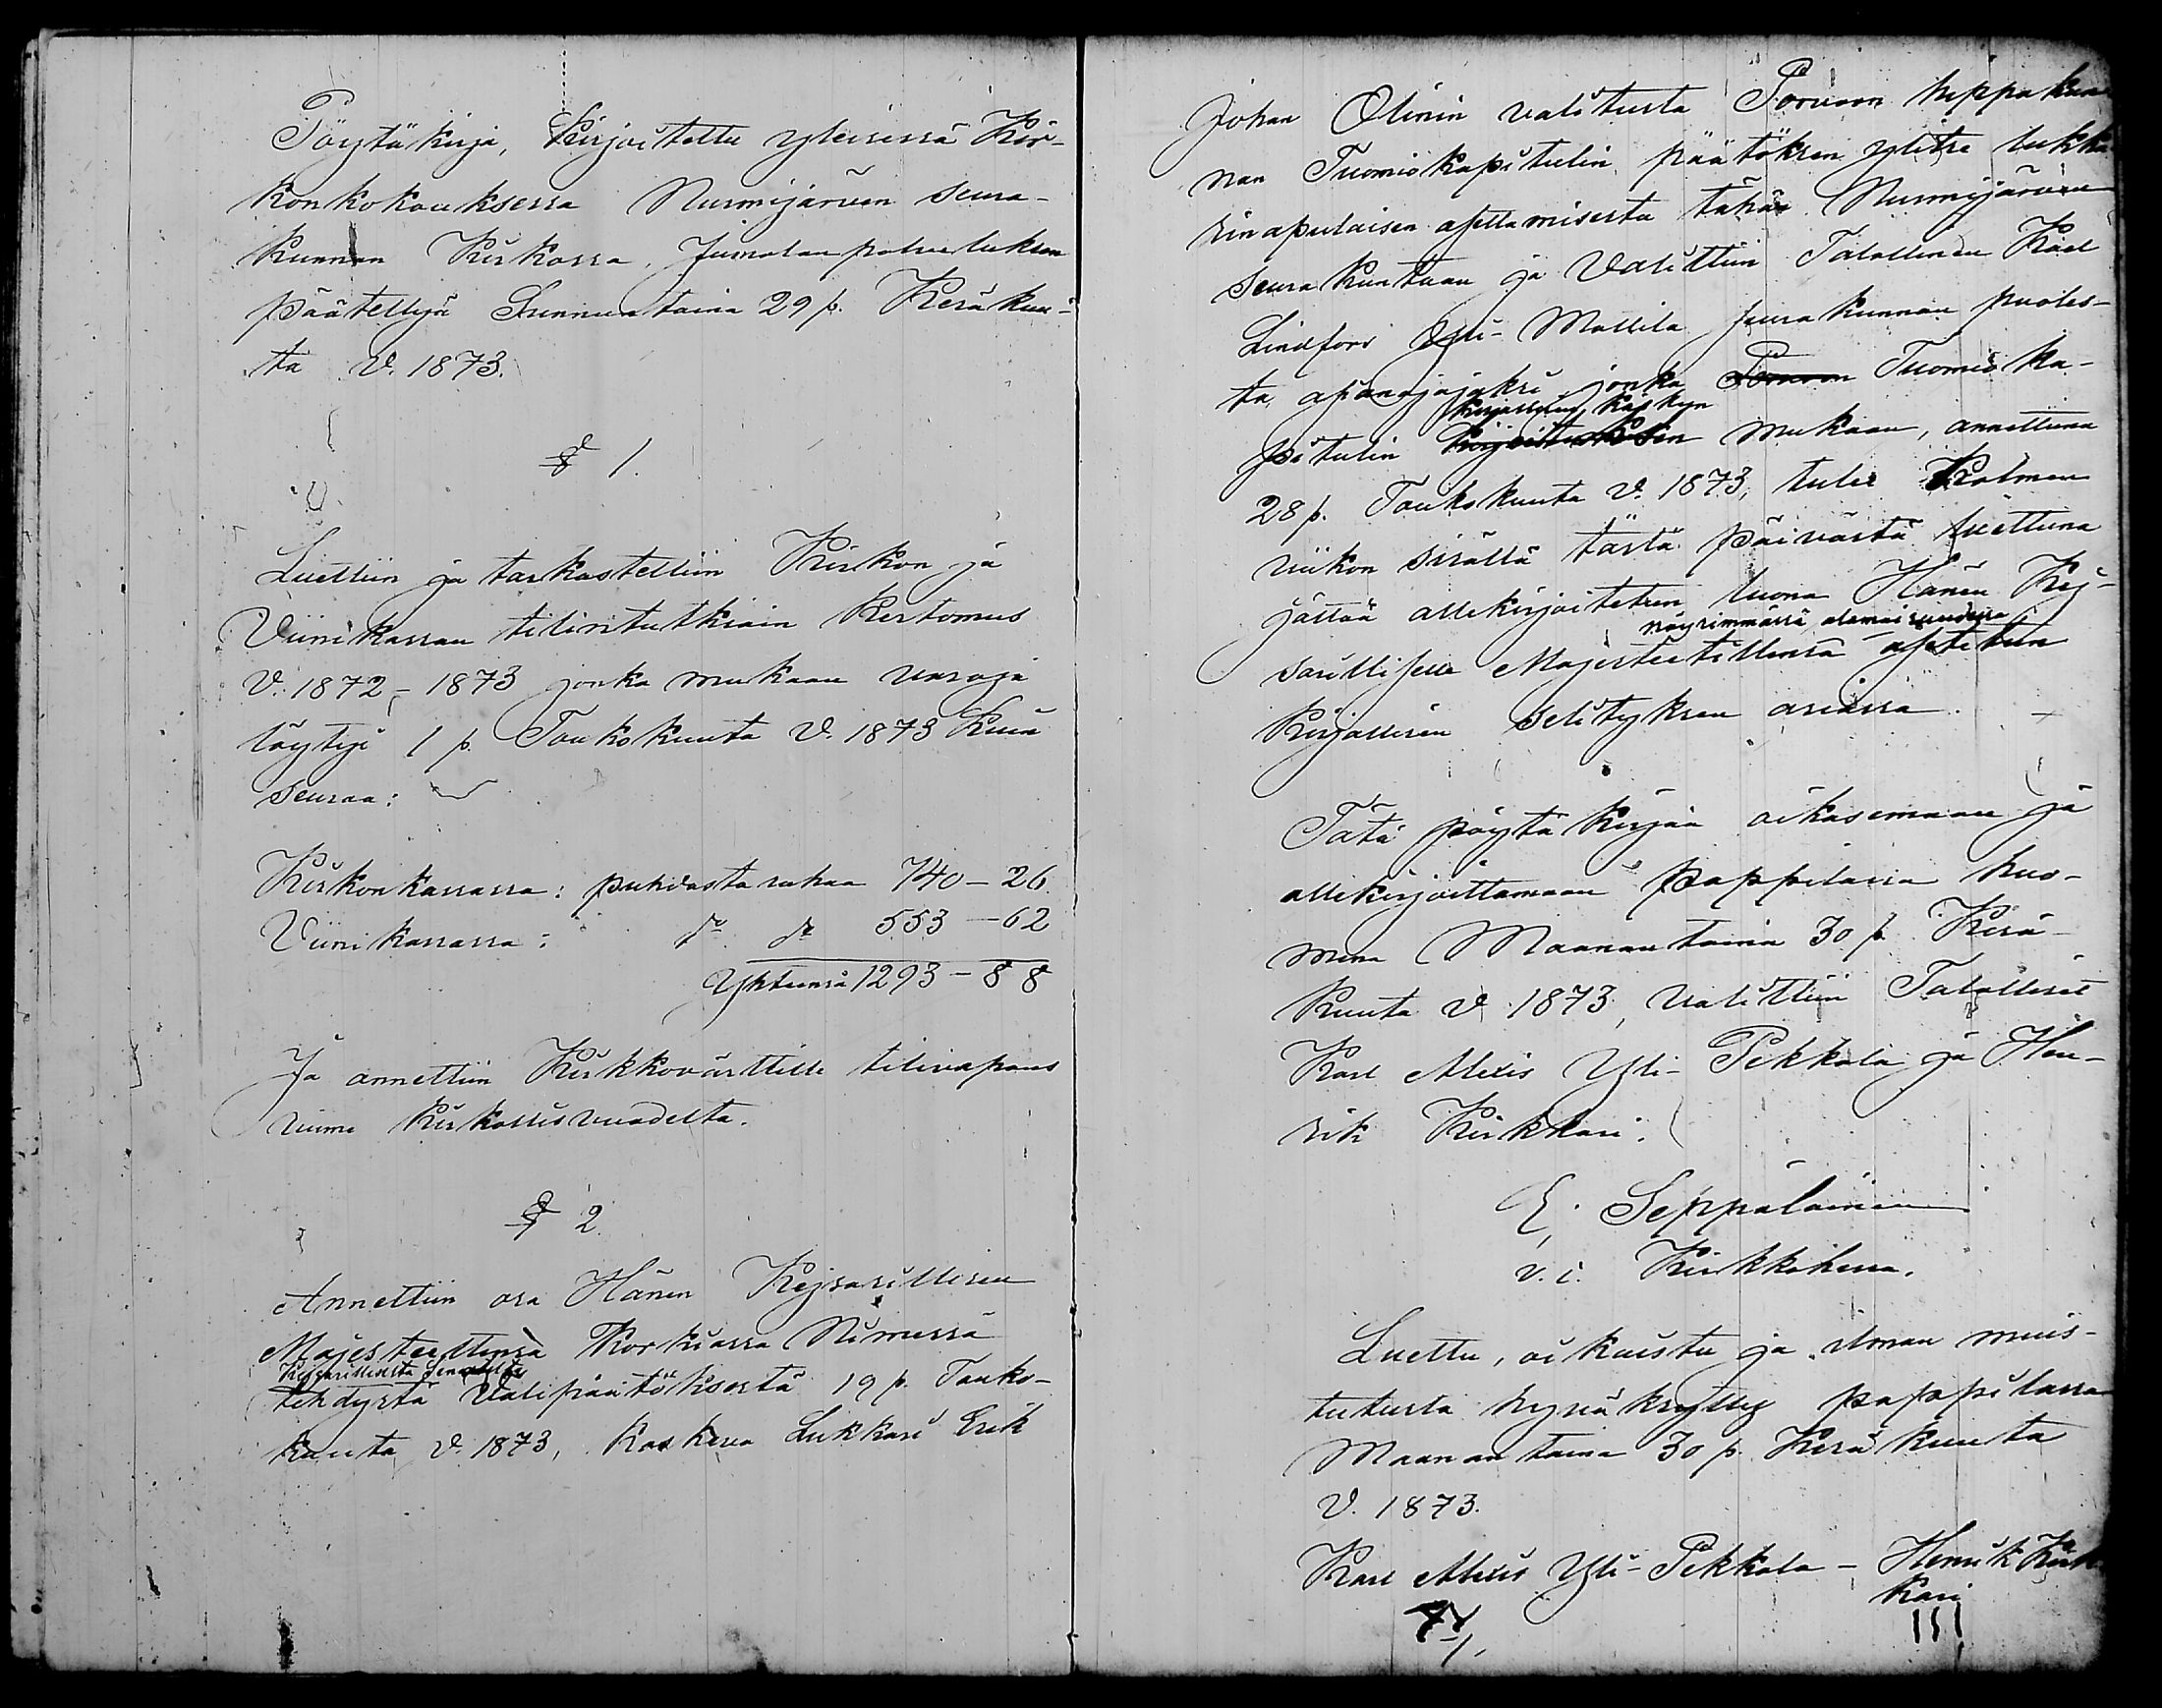 Pöytäkirja, Kirjoitettu yleisessä Kir-
konkokouksessa Nurmijärven seura-
kunnan Kirkossa, Jumalanpalveluksen
päätettyä Sunnuntaina 29 p. Kesäkuu-
ta V. 1873.
§ 1.
Luettiin ja tarkastettiin Kirkon ja
Viinikassan tilintutkiain Kertomus
V. 1872-1873 jonka mukaan varoja
löytyi 1 p. Toukokuuta V. 1873 Kuin
seuraa:
Kirkonkassassa: puhdasta rahaa 740-26
Viinikassassa: do do 553-62
Yhteensä 1293-88
Ja annettiin Kirkkovärttille tilivapaus
viime Kirkollisvuodelta.
§ 2.
Annettiin osa Hänen Kejsarillisen
Majesteettinsä Korkiassa Nimessä
Kejsarilliselta Senatilta
tehdystä Välipäätöksestä 19 p. Touko-
kuuta V. 1873, Koskeva Lukkari Erik
Johan Olinin valitusta Porvoon hippakun-
nan Tuomiokapitulin päätöksen ylitse lukka-
rinapulaisen asettamisesta tähän Nurmijärven
seurakuntaan ja Valittiin Talollinen Karl
Lindfors Yli-Mottila seurakunnan puoles-
ta asianajajaksi jonka Porvoon Tuomioka-
kirjallisen käskyn
pitulin Kirjoituksen mukaan, annettuna
28 p. Toukokuuta V. 1873, tulee Kolmen
viikon sisällä tästä päivästä luettuna
jättää allekirjoitetun luona Hänen Kej-
nöyrimmässä alamaisuudessa
sarilliselle Majesteetillensä asetetun
Kirjallisen selityksen asiassa.
Tätä pöytäkirjaa oikasemaan ja
allekirjoittamaan pappilassa huo-
menna Maanantaina 30 p. Kesä-
kuuta V. 1873, valittiin Talolliset
Karl Alexis Yli-Pekkala ja Hen-
rik Kirkkari.
E. Seppäläinen
v. i. Kirkkoherra.
Luettu, oikaistu ja ilman muis-
tutusta hyväksytty pappilassa
Maanantaina 30 p. Kesäkuuta
V. 1873.
Karl Alexis Yli-Pekkala - Henrik Kirk-
kari